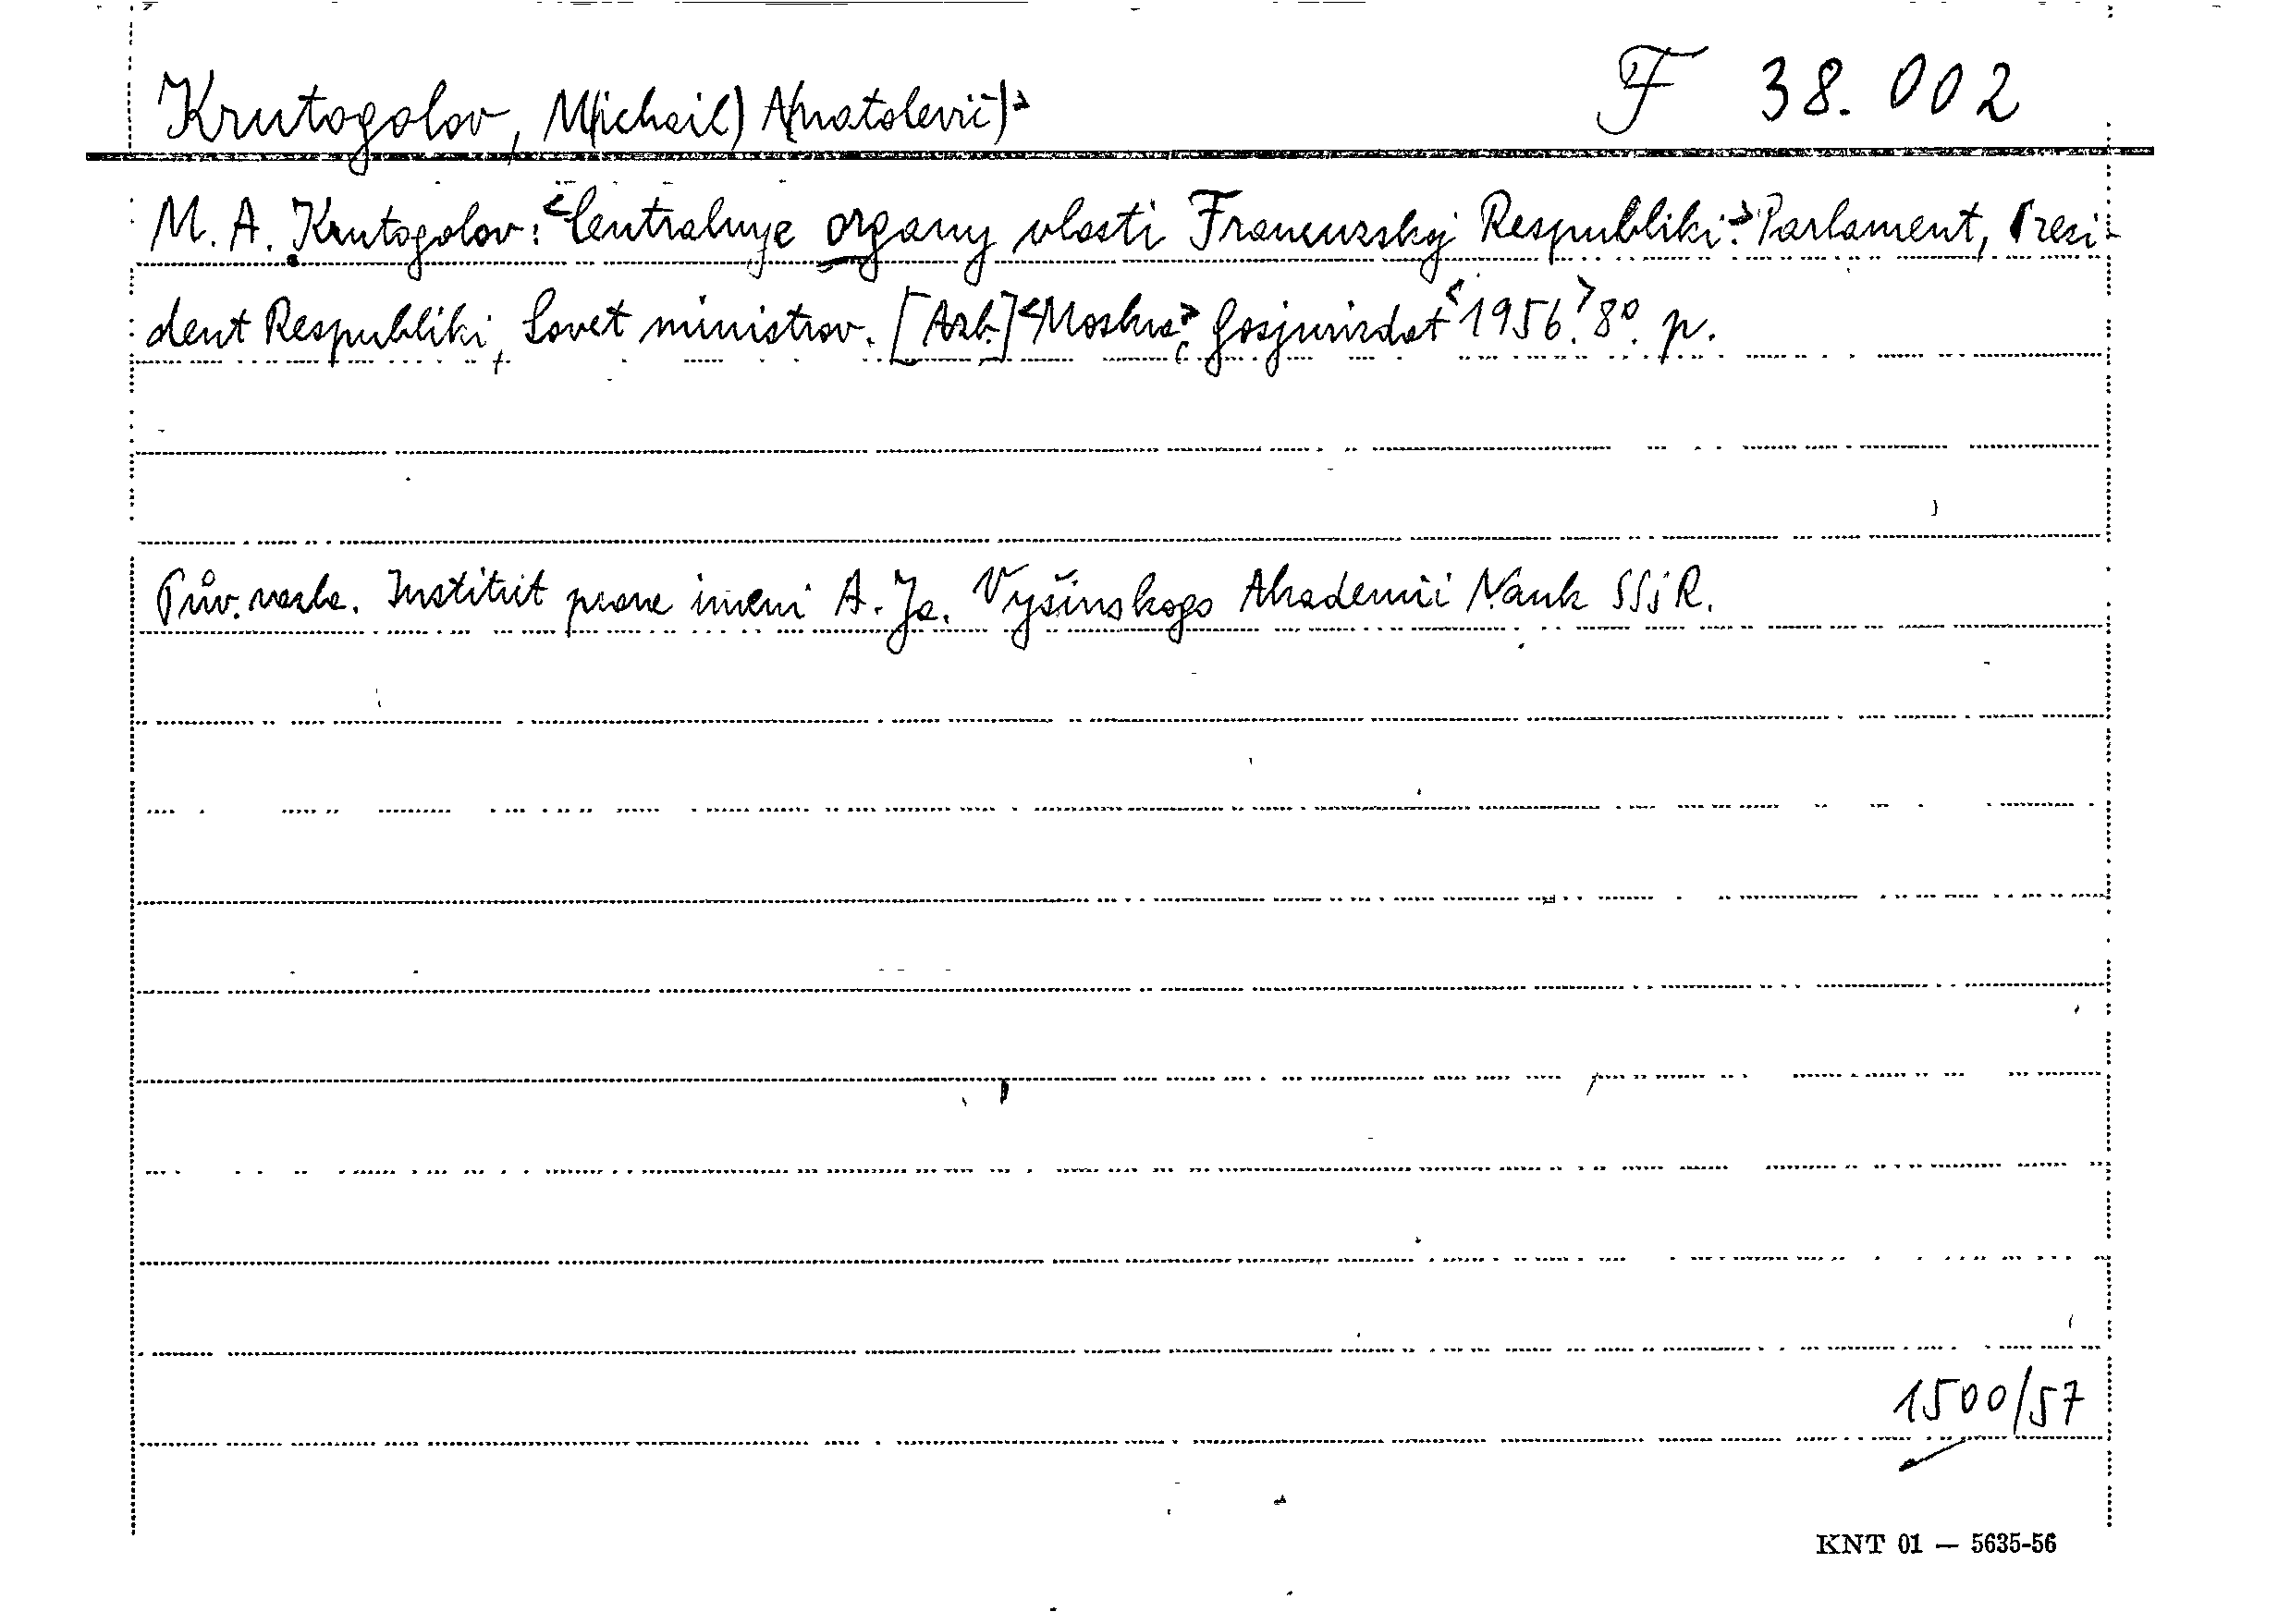 Krutogolov, M(ichail) A(natolevič) F 38.002
M. A. Krutogolov: <Centralnyje organy vlasti Francuzskoj Respubliki.> Parlament, Prezi-
dent Respubliki, Sovet ministrov. [Azb.] <Moskva>, Gosjurizdat <1956.> 8°. p.
Pův. názv. Institut prava imeni A. Ja. Vyšinskogo Akademii Nauk SSSR.
1500/57
KNT 01 — 5635-56